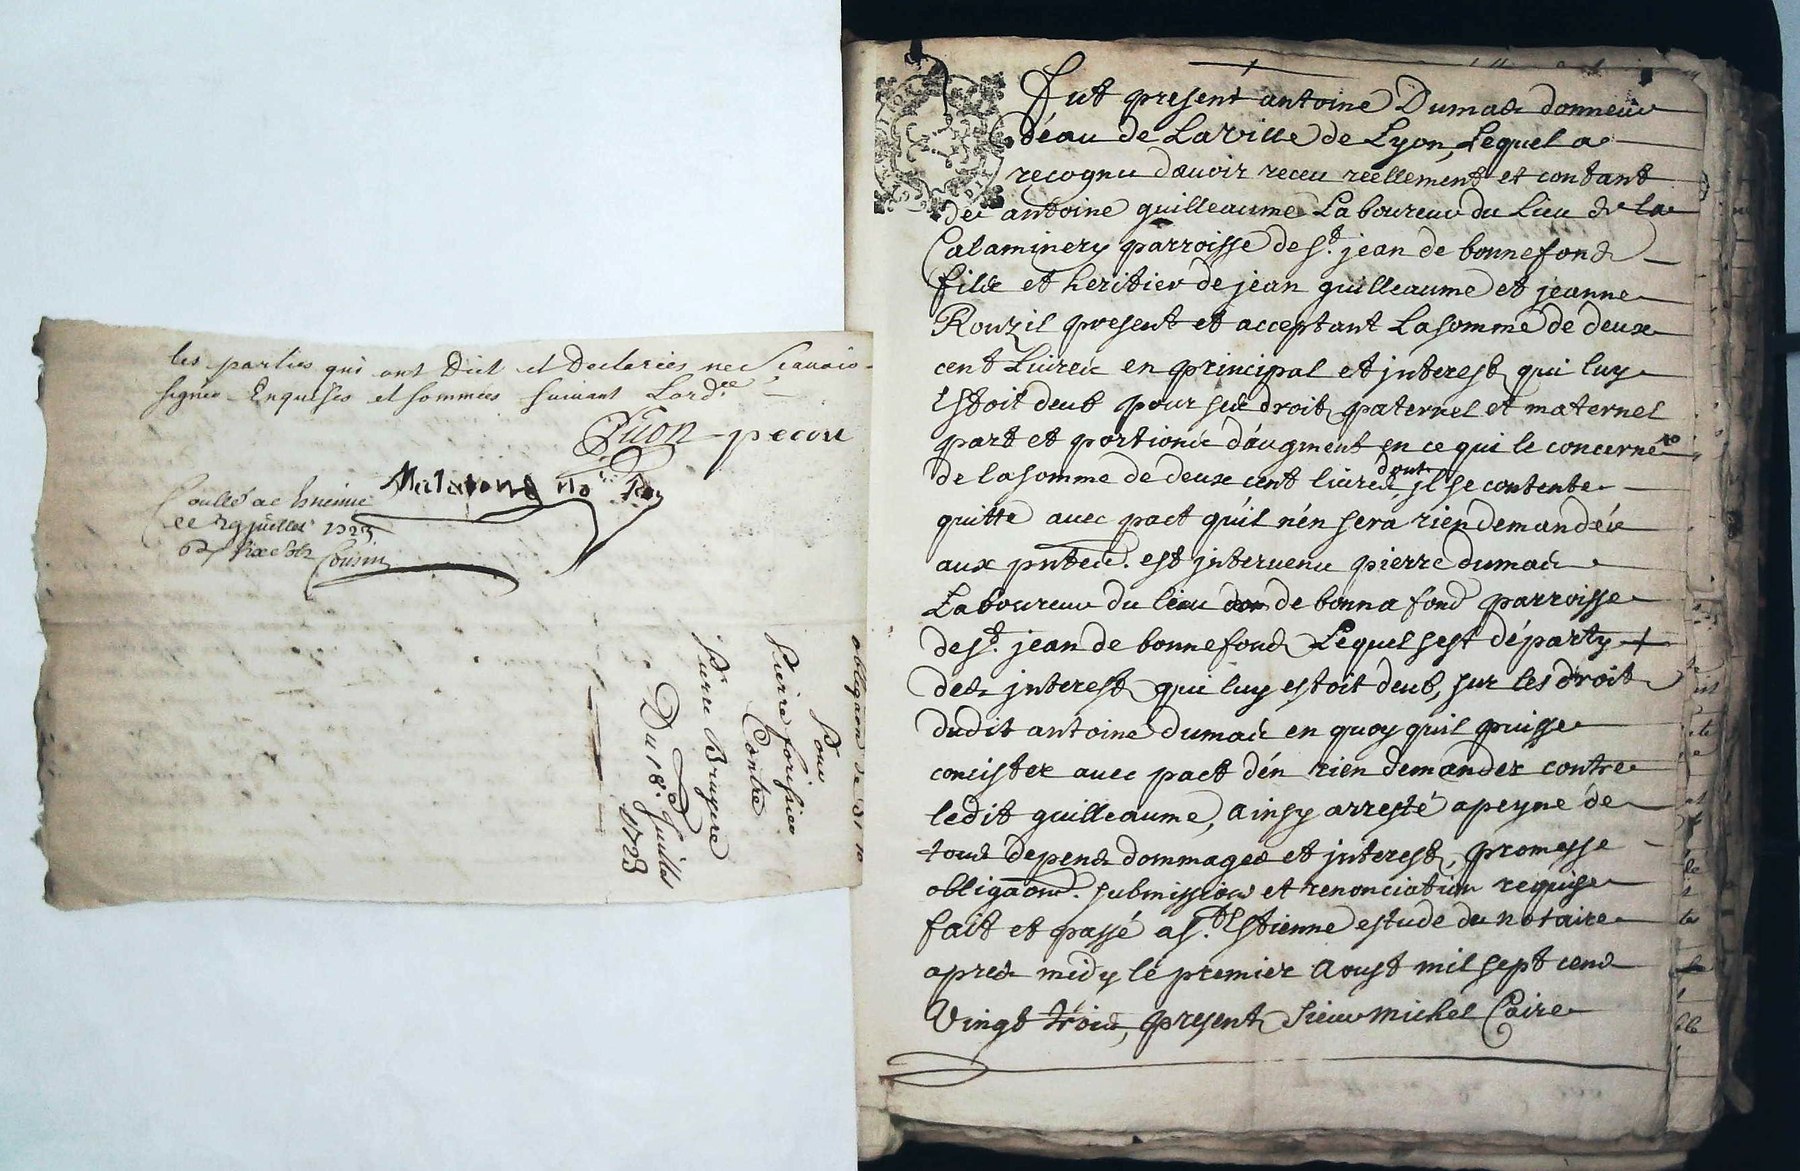 les parties qui ont Dict et Declarées ne Scavoir
signer Enquises et sommées suivant Lord.ce
Guon pecou
Malavend no.re Roy
Coullé a St Estienne
le 29 juillet 1723
Cousin
obligaon de 81 lt
Pour
Pierre forissier
Contre
Pierre Bruyere
Du 18e Juillet
1723
Fut present antoine Dumas donneur
déau de La Ville de Lyon, Lequel a
recognu dauoir receu reellement et contant
de antoine guilleaume Laboureur du Lieu de la
Calaminery parroisse de St. jean de bonnefond
fils et heritier de jean guilleaume et jeanne
Rouzil present et acceptant La somme de deux
cent Liures en principal et jnterest qui luy
Estoit deub pour ses droit paternel et maternel
part et portions d'augment en ce qui le concerne
de la somme de deux cent liures, dont jl se contente
quitte avec pact qu'il n'en sera rien demandée
aux pntes. est jnteruenu pierre dumas
Laboureur du lieu de bonna fond parroisse
de St. jean de bonnefond Lequel sest départy
des jnterest qui luy estoit deub, sur les droit
dudit antoine dumas en quoy quil puisse
concister avec pact dén rien demander contre
ledit guilleaume, ainsy arresté a peyne de
tous depens dommages et jnterest, promesse
obligaons. submission et renonciation requise
fait et passé a St. Estienne estude du notaire
apres midy le premier Aoust mil sept cens
Vingt trois, present Sieur Michel Caire